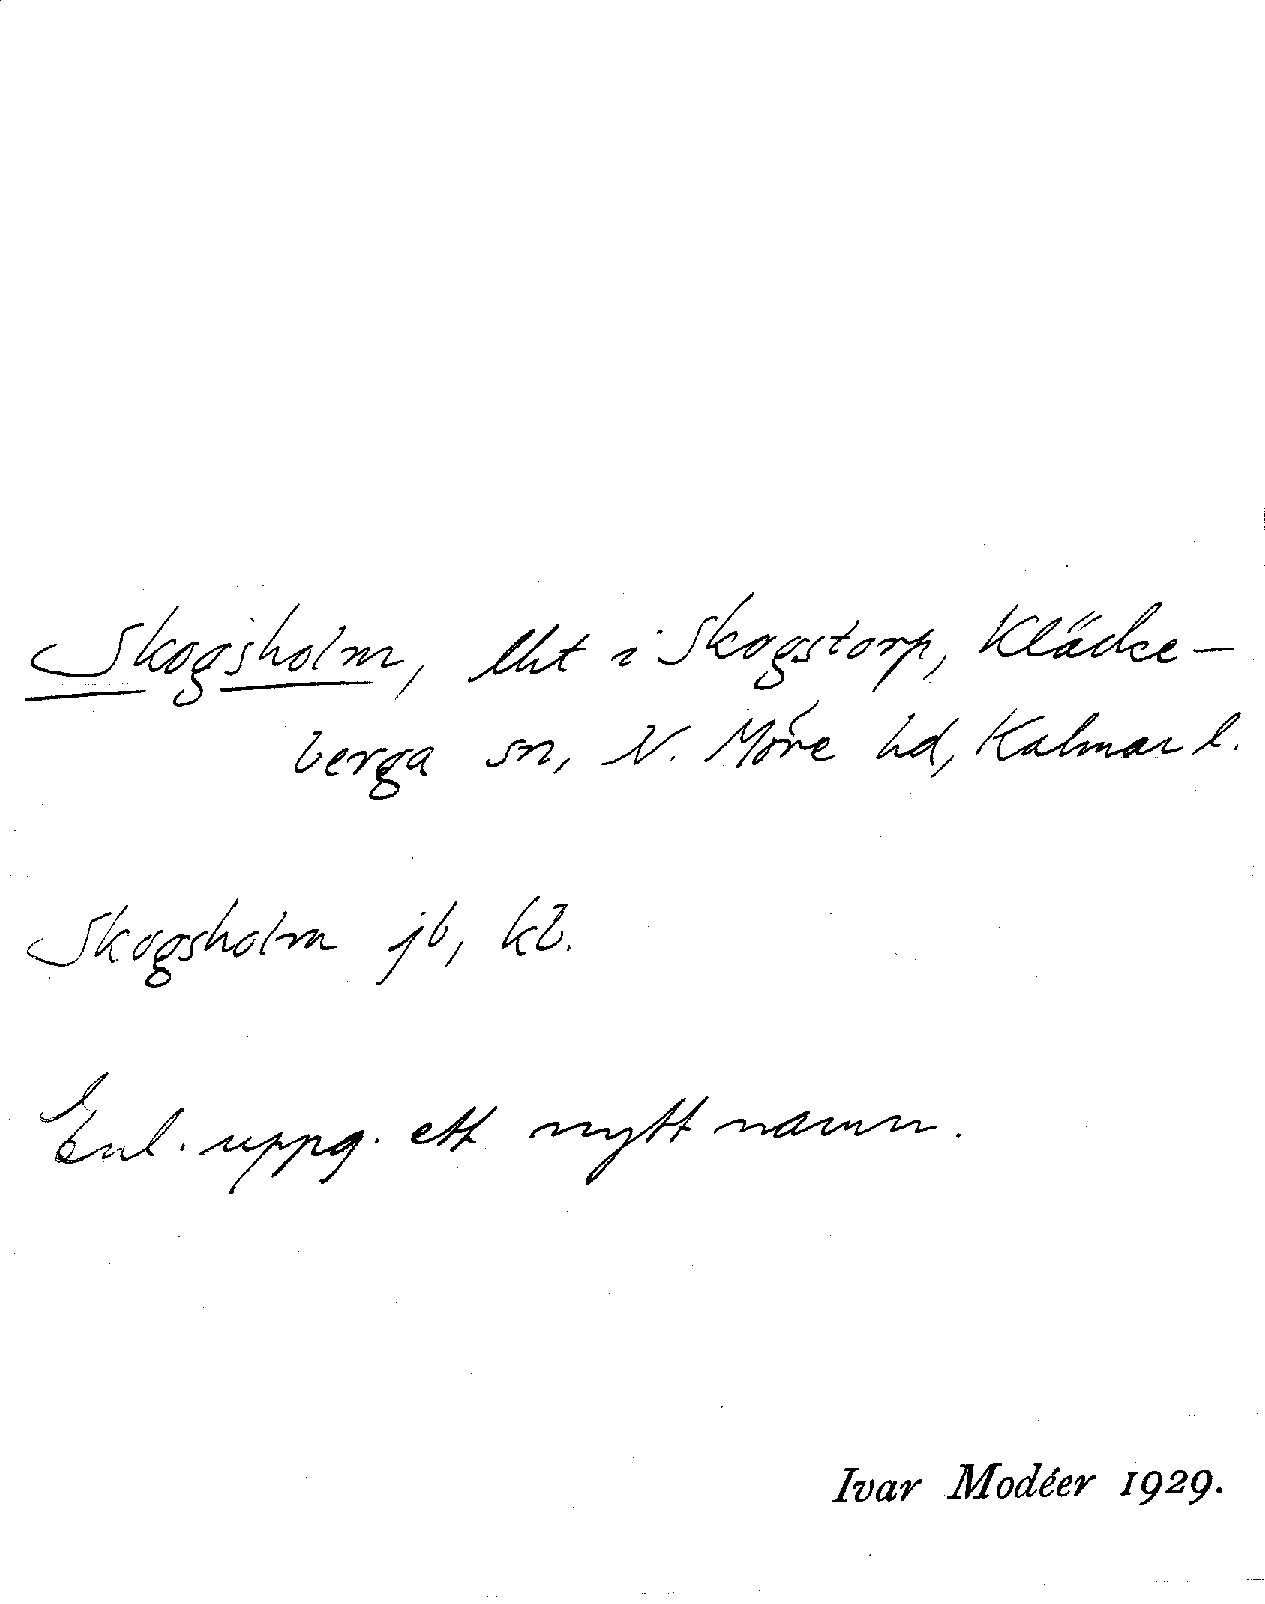 Skogsholm, lht i Skogstorp, Kläcke-
berga sn, N. Möre hd, Kalmar l.
Skogsholm jb, kb.
Enl. uppg. ett nytt namn.
Ivar Modéer 1929.